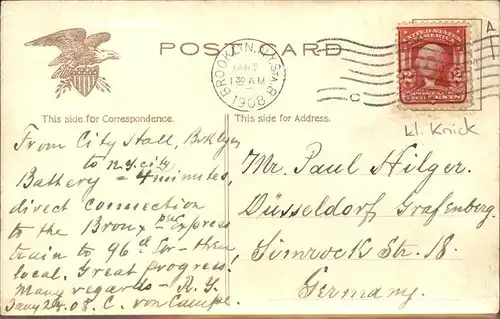 POST CARD
BROOKLYN, N.Y. STA. B
JAN 2
1 30 AM
1908
UNITED STATES OF AMERICA
2 2
POSTAGE
TWO CENTS
A
kl. Knick
This side for Correspondence.
This side for Address.
From City Hall, Bklyn
to N.Y. City
Battery = 4 minutes,
direct connection
to the Bronx per Express
train to 96th Str - then
local. Great progress.
Many regards - R.Y.
C. von Campe.
Mr. Paul Hilger.
Düsseldorf Grafenberg
Simrock Str. 18.
Germany.